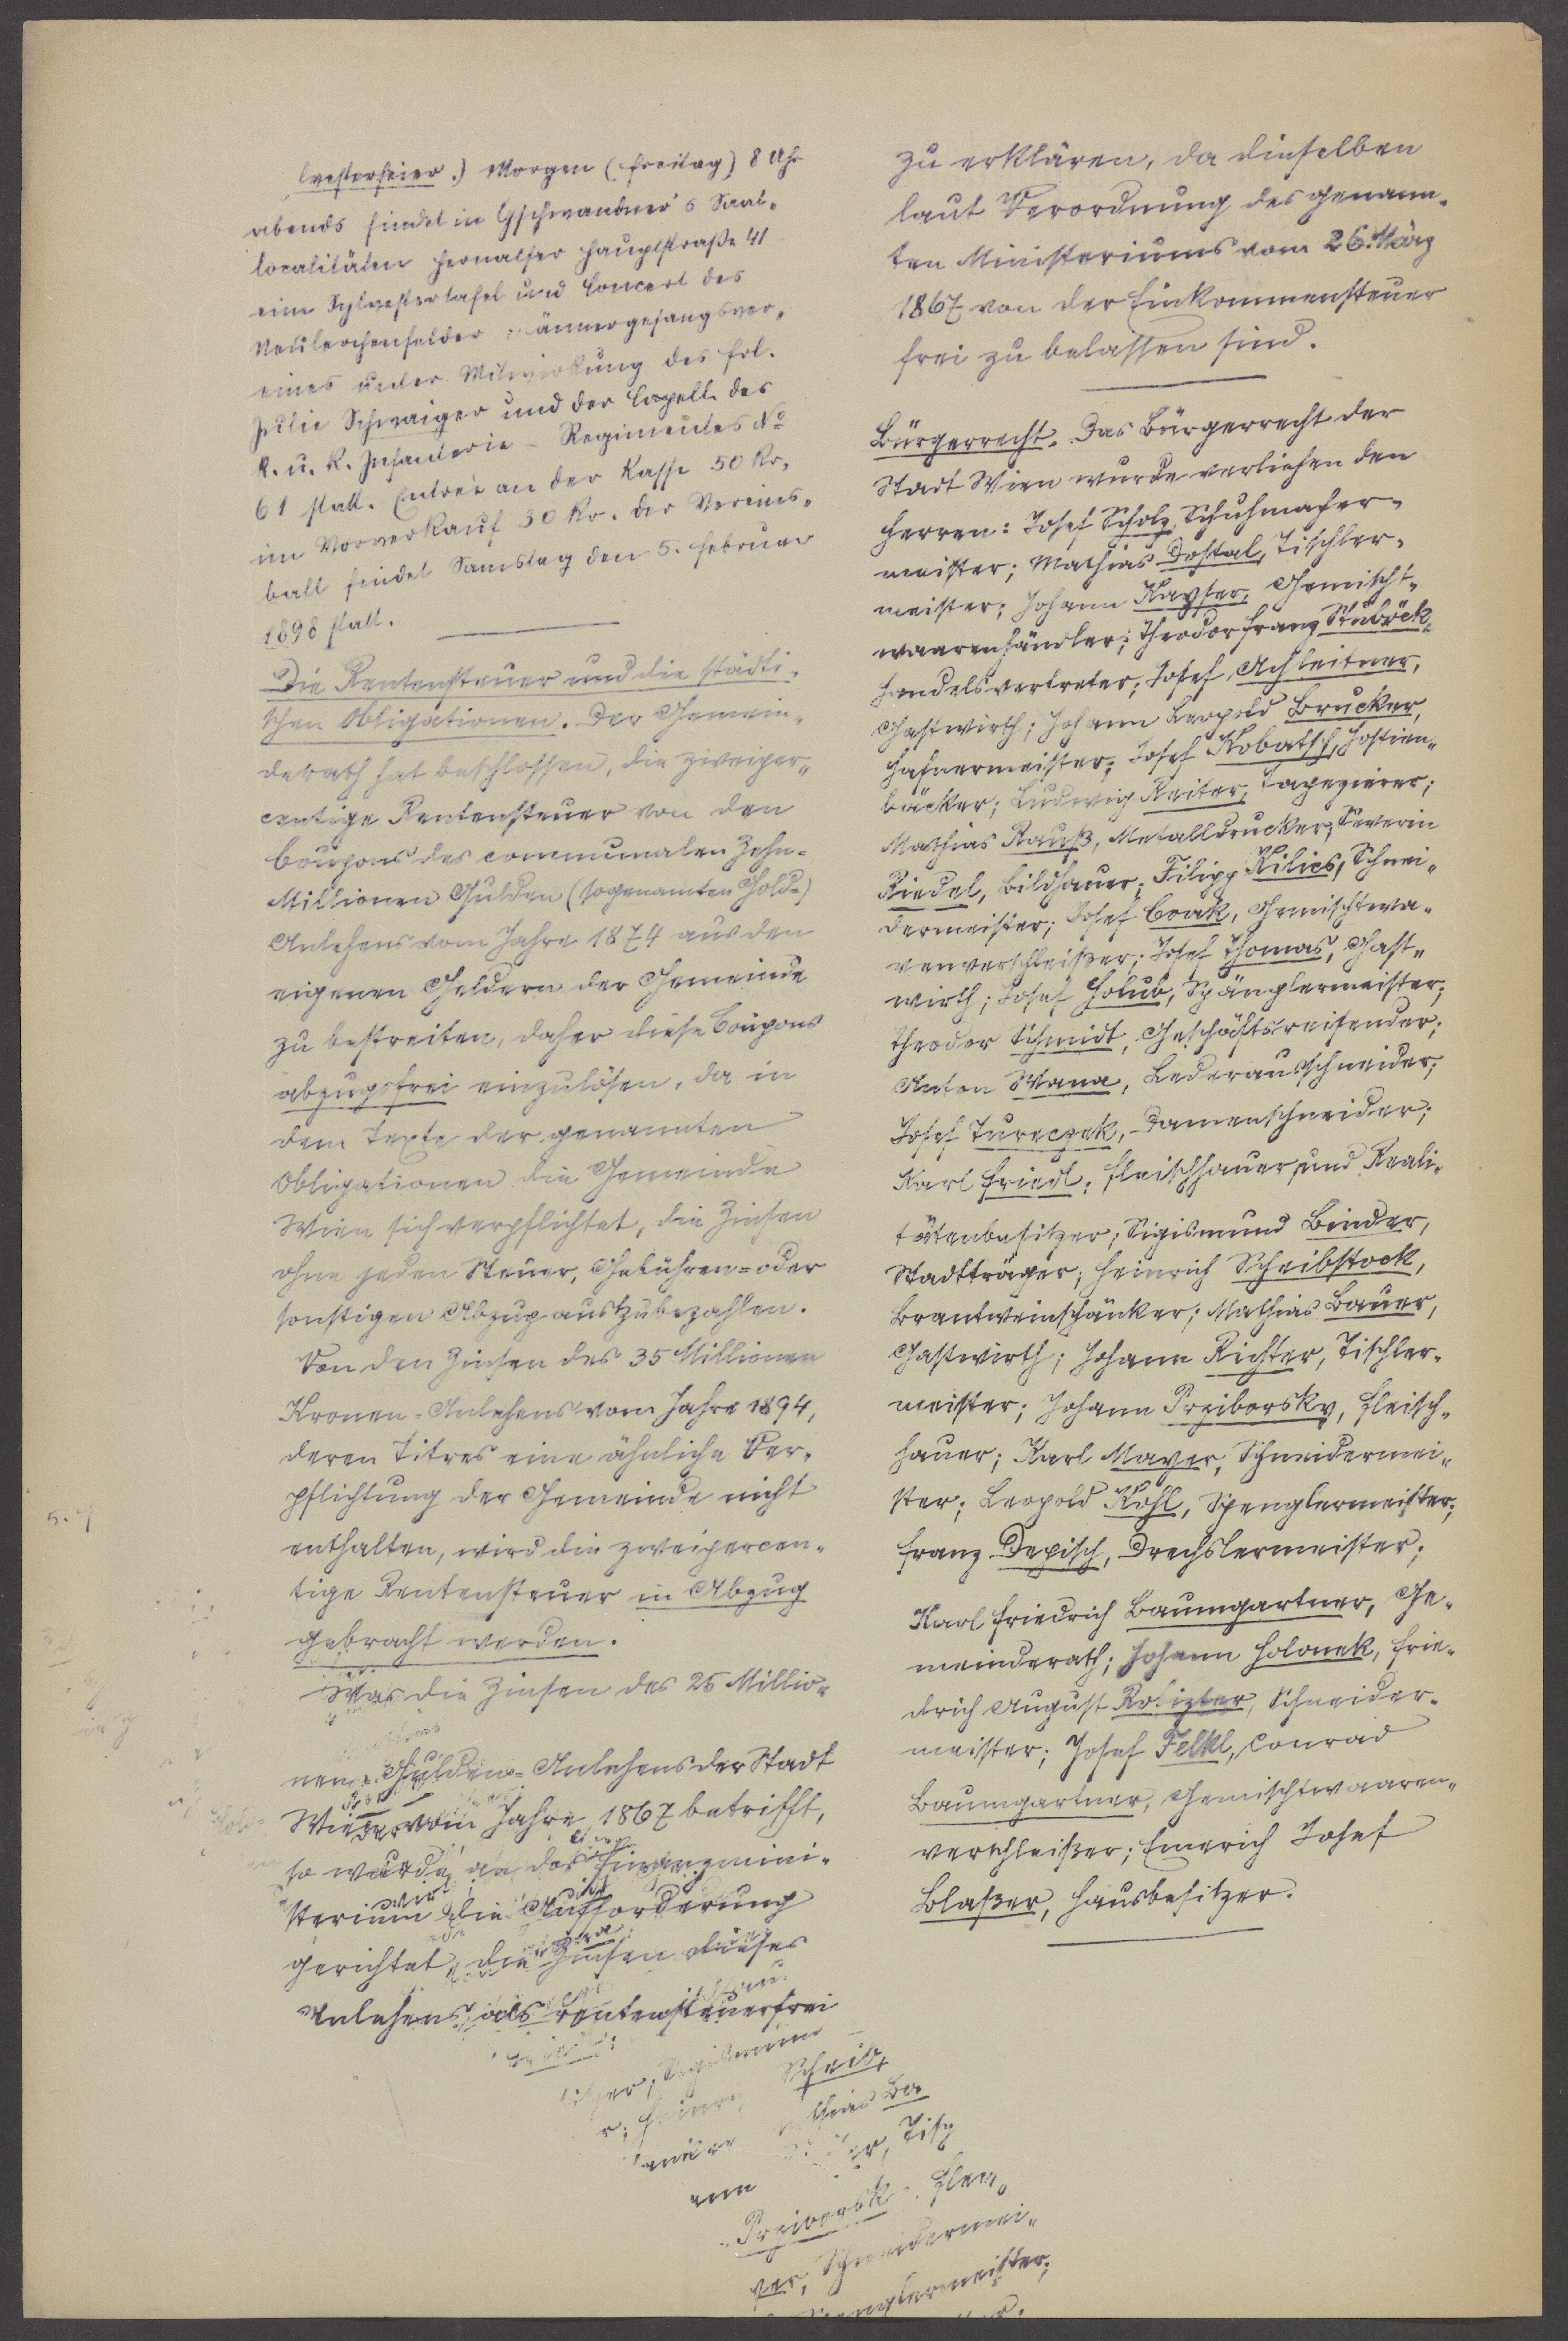 lvesterfeier.) Morgen (Freitag) 8 Uhr
abends findet in Gschwandner's Saal-
localitäten Hernalser Hauptstraße 41
eine Sylvestertafel und Concert des
Neulerchenfelder Männergesangsver-
eines unter Mitwirkung des Frl.
Julie Schwaiger und der Capelle des
k. u. k. Infanterie-Regimentes No
61 statt. Entrée an der Kasse 50 Kr.
im Vorverkauf 30 Kr. Der Vereins-
ball findet Samstag den 5. Februar
1898 statt.
Die Rentensteuer und die städti-
schen Obligationen. Der Gemein-
derath hat beschlossen, die zweiper-
centige Rentensteuer von den
Coupons des communalen Zehn-
Millionen Gulden (sogenannten Gold-)
Anlehens vom Jahre 1874 aus den
eigenen Geldern der Gemeinde
zu bestreiten, daher diese Coupons
abzugsfrei einzulösen, da in
dem Texte der genannten
Obligationen die Gemeinde
Wien sich verpflichtet, die Zinsen
ohne jeden Steuer, Gebühren= oder
sonstigen Abzug auszubezahlen.
Von den Zinsen des 35 Millionen
Kronen=Anlehens vom Jahre 1894,
deren Titres eine ähnliche Ver-
pflichtung der Gemeinde nicht
enthalten, wird die zweipercen-
tige Rentensteuer in Abzug
gebracht werden.
Was die Zinsen des 25 Millio-
nen=Gulden=Anlehens der Stadt
Wien vom Jahre 1867 betrifft,
so wurde an das Finanzmini-
sterium die Aufforderung
gerichtet, die Zinsen dieses
Anlehens als rentensteuerfrei
Sigismun
Schreib
Ba
Tisch
Preiborsk
Schneidermei-
englermeister;
zu erklären, da dieselben
laut Verordnung des genann-
ten Ministeriums vom 26. März
1867 von der Einkommensteuer
frei zu belassen sind.
Bürgerrecht. Das Bürgerrecht der
Stadt Wien wurde verliehen den
Herren: Josef Scholz, Schuhmacher-
meister; Mathias Dostal, Tischler-
meister; Johann Kayser, Gemischt-
waarenhändler; Theodor Franz Stuböck,
Handelsvertreter; Josef Achleitner,
Gastwirth; Johann Leopold Brucker,
Hafnermeister; Josef Kobatsch, Hostien-
bäcker; Ludwig Reiter, Tapezierer;
Mathias Rauß, Metalldrucker; Severin
Riedel, Bildhauer; Filipp Kilies, Schnei-
dermeister; Josef Cvak, Gemischtwa-
renverschleißer; Josef Thomas, Gast-
wirth; Josef Holub, Spänglermeister;
Theodor Schmidt, Geschäftsreisender;
Anton Wana, Lederausschneider;
Josef Tureczek, Damenschneider;
Karl Friedl, Fleischhauer und Reali-
tätenbesitzer; Sigismund Binder,
Stadtträger; Heinrich Scheibstock,
Brantweinschänker; Mathias Bauer,
Gastwirth; Johann Richter, Tischler-
meister; Johann Preiborsky, Fleisch-
hauer; Karl Mayer, Schneidermei-
ster; Leopold Kohl, Spenglermeister;
Franz Depisch, Drechslermeister;
Karl Friedrich Baumgartner, Ge-
meinderath; Johann Holonek, Frie-
drich August Rolizter, Schneider-
meister; Josef Felkl, Conrad
Baumgartner, Gemischtwaaren-
verschleißer; Emerich Josef
Blaßer, Hausbesitzer.